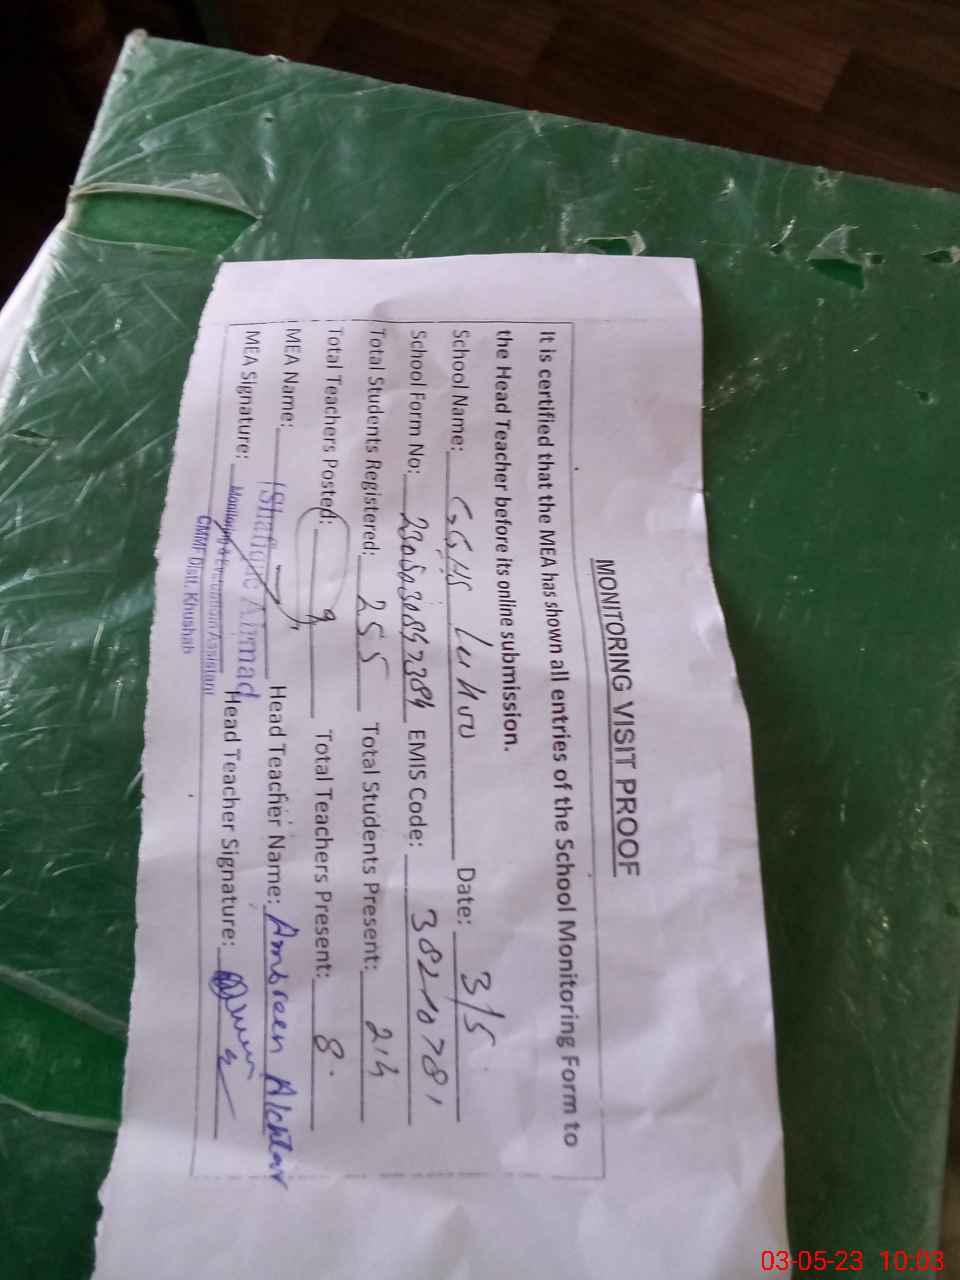 MONITORING VISIT PROOF
It is certified that the MEA has shown all entries of the School Monitoring Form to
the Head Teacher before its online submission.
School Name: GGHS Date: 3/5
School Form No: EMIS Code: 38210781
Total Students Registered: 255 Total Students Present: 214
Total Teachers Posted: 9 Total Teachers Present: 8
MEA Name: Head Teacher Name: Ambreen Akhtar
MEA Signature: Head Teacher Signature:
Shafique Ahmad
Monitoring & Evaluation Assistant
CMMF Distt. Khushab
03-05-23 10:03